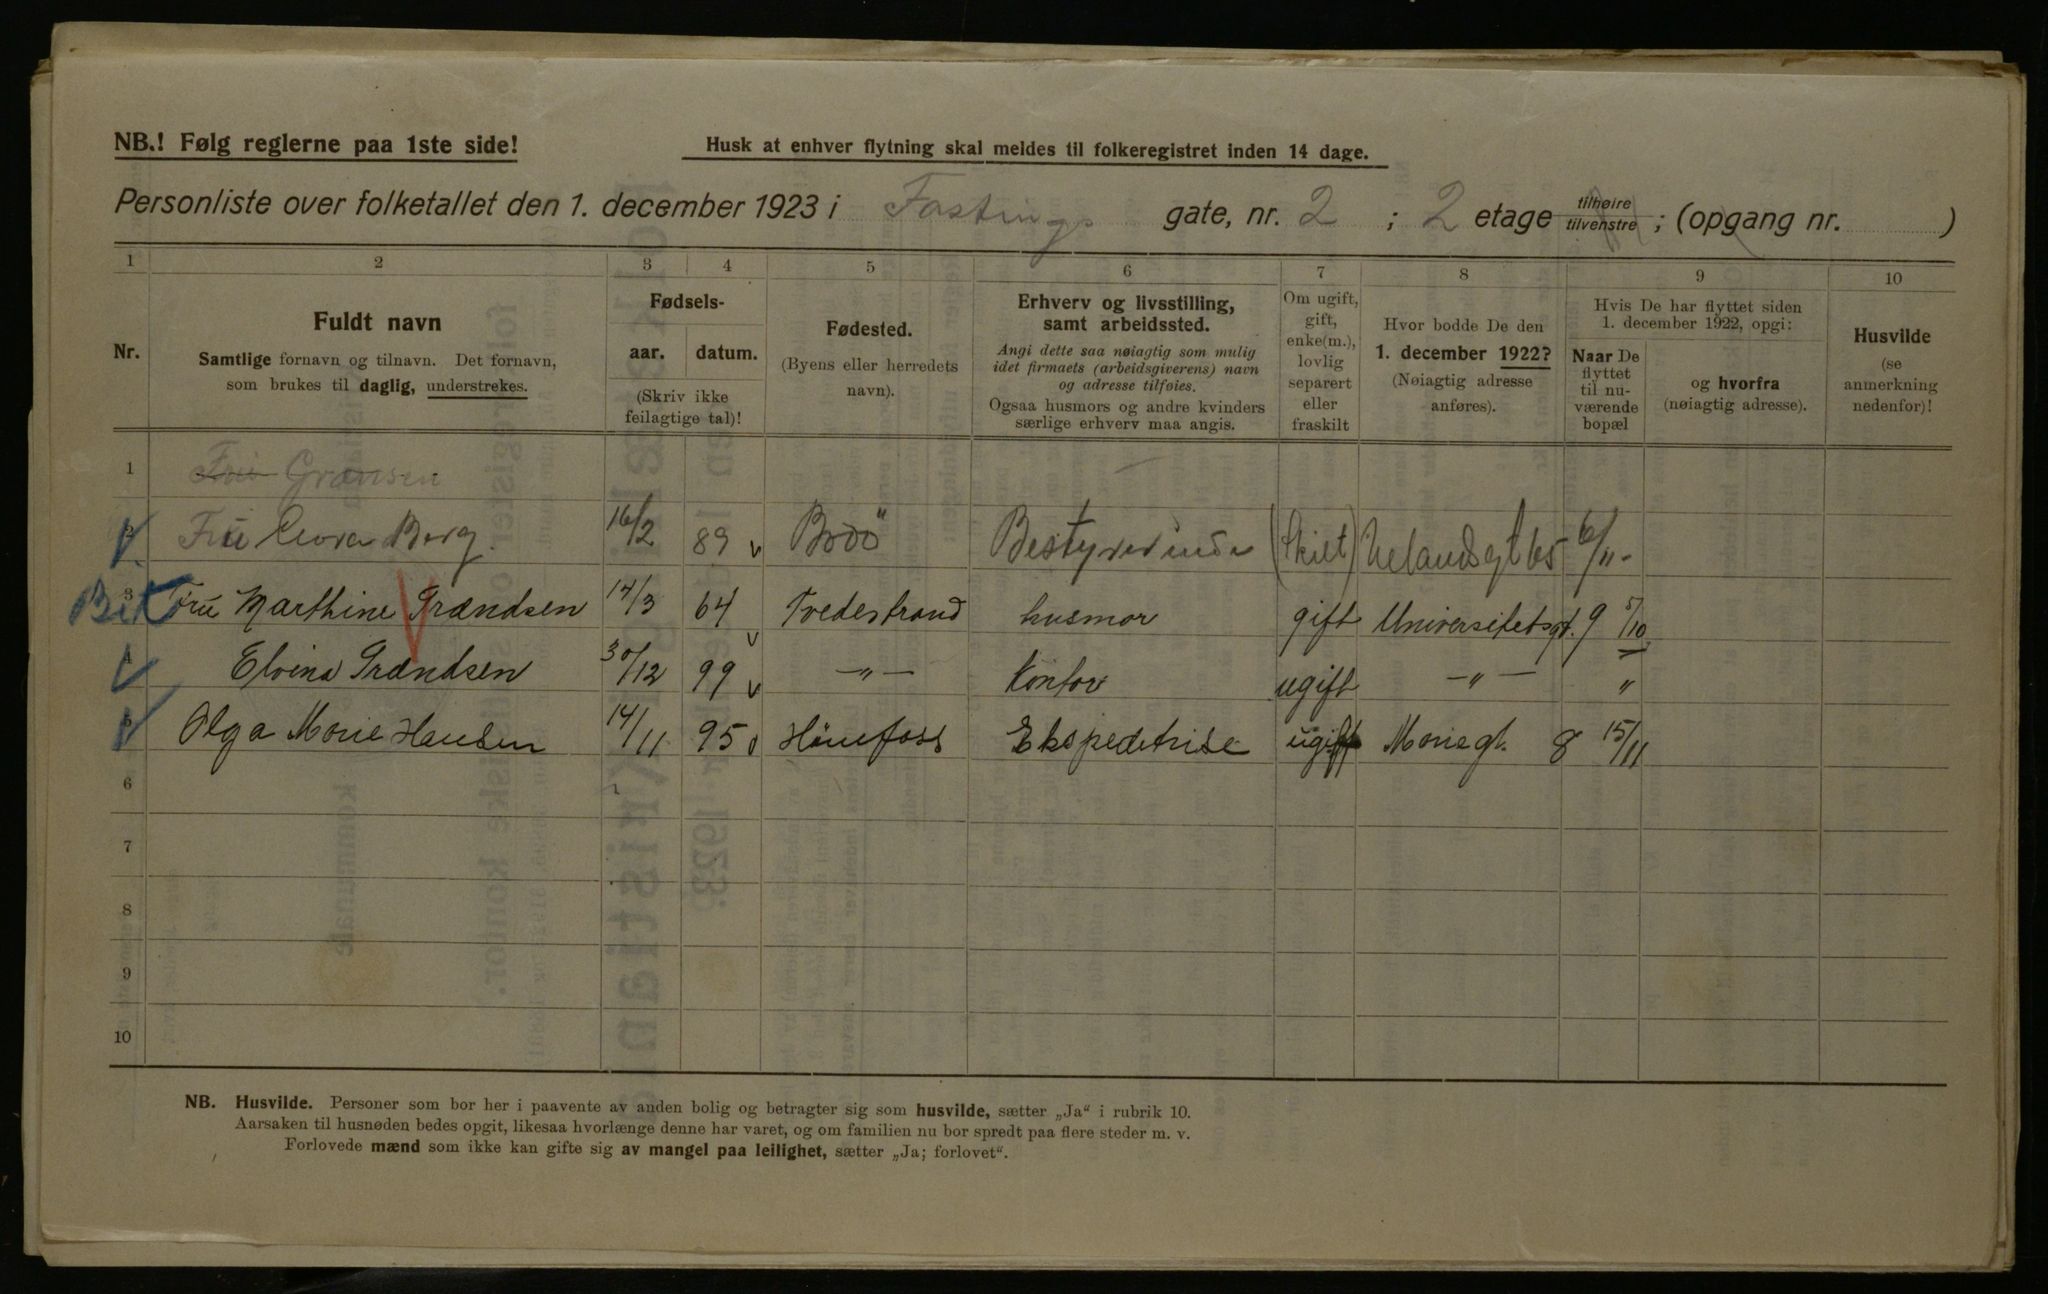 NB.! Følg reglerne paa 1ste side!
Husk at enhver flytning skal meldes til folkeregistret inden 14 dage.
Personliste over folketallet den 1. december 1923 i Fastings gate, nr. 2 ; 2 etage tilhøire tilvenstre ; (opgang nr. )
1 2 3 4 5 6 7 8 9 10
Nr.
Fuldt navn
Samtlige fornavn og tilnavn. Det fornavn,
som brukes til daglig, understrekes.
Fødsels-
aar. datum.
(Skriv ikke
feilagtige tal)!
Fødested.
(Byens eller herredets
navn).
Erhverv og livsstilling,
samt arbeidssted.
Angi dette saa nøiagtig som mulig
idet firmaets (arbeidsgiverens) navn
og adresse tilføies.
Ogsaa husmors og andre kvinders
særlige erhverv maa angis.
Om ugift,
gift,
enke(m.),
lovlig
separert
eller
fraskilt
Hvor bodde De den
1. december 1922?
(Nøiagtig adresse
anføres).
Hvis De har flyttet siden
1. december 1922, opgi:
Naar De
flyttet
til nu-
værende
bopæl
og hvorfra
(nøiagtig adresse).
Husvilde
(se
anmerkning
nedenfor)!
1 Grænsen
2 Fru Cora Borg. 16/2 89 Bodö Bestyrerinde (skilt) Uelandsgt 65 6/11-
3 Fru Marthine Trændsen 14/3 64 Tvedestrand husmor gift Universitetsgt. 9 5/10
4 Elvina Trændsen 30/12 99 -"- Kontor ugift -"- "
5 Olga Marie Hansen 14/11 95 Hönefoss Ekspeditrise ugift Mariegt. 8 15/11
6
7
8
9
10
NB. Husvilde. Personer som bor her i paavente av anden bolig og betragter sig som husvilde, sætter „Ja“ i rubrik 10.
Aarsaken til husnøden bedes opgit, likesaa hvorlænge denne har varet, og om familien nu bor spredt paa flere steder m. v.
Forlovede mænd som ikke kan gifte sig av mangel paa leilighet, sætter „Ja; forlovet“.